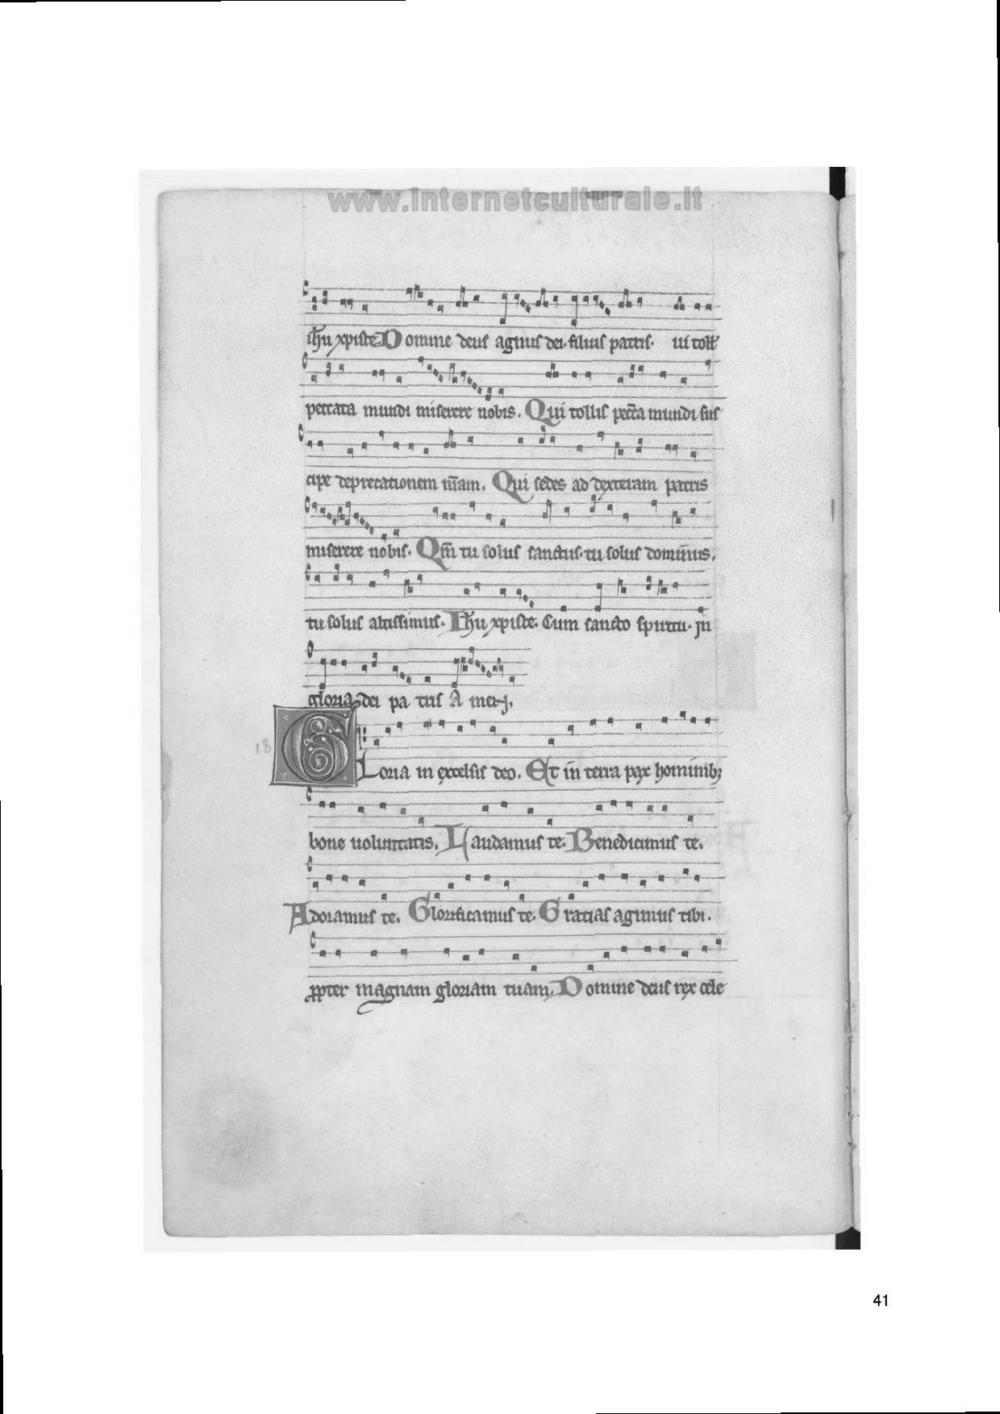 www.internetculturale.it
ihu xpiste. Domine deus agnus dei. filius patris. toll
peccata mundi miserere nobis. Qui tollis pecca mundi sus
cipe deprecationem nram. Qui sedes ad dexteram patris
miserere nobis. Qm tu solus sanctus. tu solus dominus.
tu solus altissimus. Ihu xpiste. Cum sancto spiritu. in
gloria dei pa tris A men.
18
Gloria in excelsis deo. Et in terra pax hominib;
bone uoluntatis. Laudamus te. Benedicimus te.
Adoramus te. Glorificamus te. Gratias agimus tibi.
ppter magnam gloriam tuam. Domine deus rex cele
41